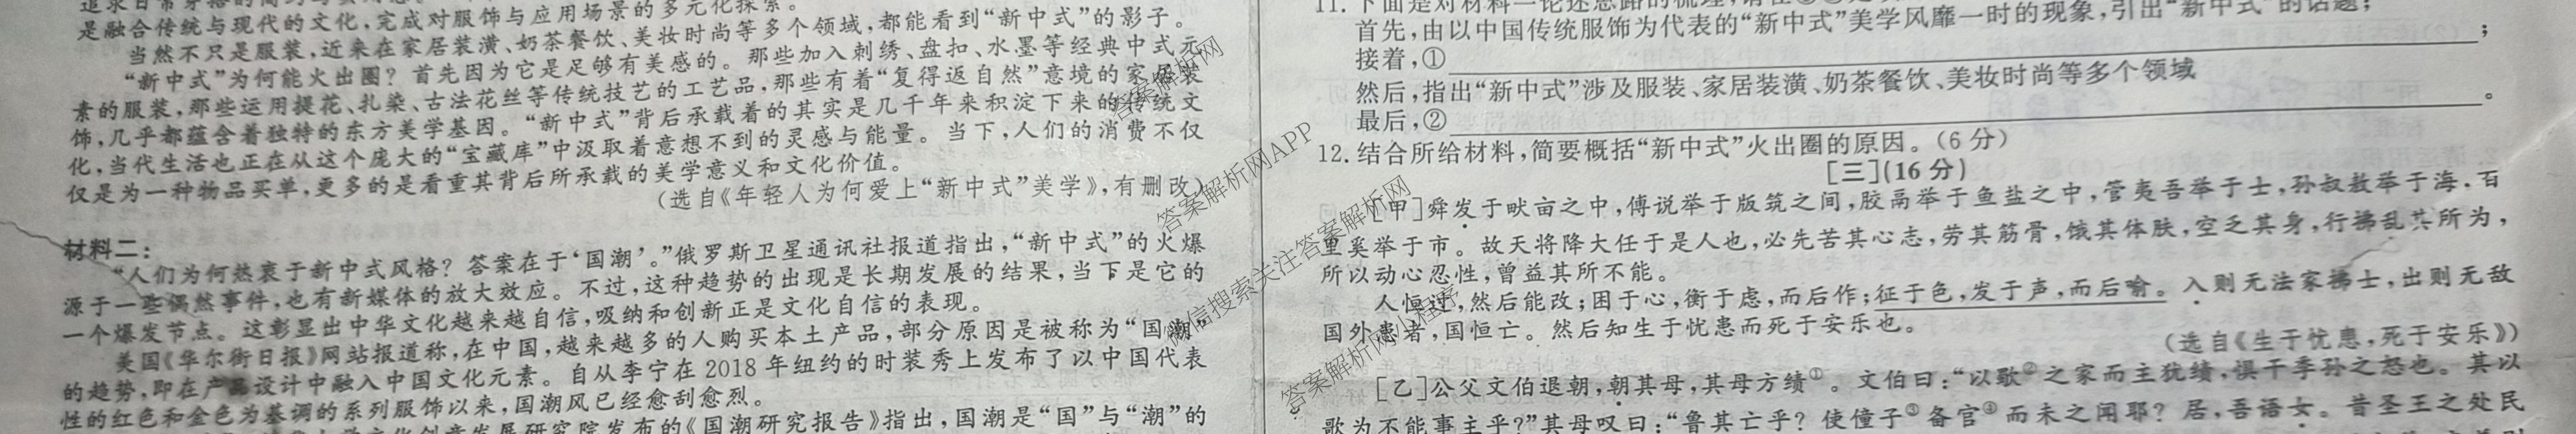 追求日常穿搭的简约与
是融合传统与现代的文化，完成对服饰与应用场景的多元化探索。
当然不只是服装，近来在家居装潢、奶茶餐饮、美妆时尚等多个领域，都能看到“新中式”的影子。
“新中式”为何能火出圈？首先因为它是足够有美感的。那些加入刺绣、盘扣、水墨等经典中式元
素的服装，那些运用提花、扎染、古法花丝等传统技艺的工艺品，那些有着“复得返自然”意境的家居装
饰，几乎都蕴含着独特的东方美学基因。“新中式”背后承载着的其实是几千年来积淀下来的传统文
化，当代生活也正在从这个庞大的“宝藏库”中汲取着意想不到的灵感与能量。当下，人们的消费不仅
仅是为一种物品买单，更多的是看重其背后所承载的美学意义和文化价值。
（选自《年轻人为何爱上“新中式”美学》，有删改）
材料二：
“人们为何热衷于新中式风格？答案在于‘国潮’。”俄罗斯卫星通讯社报道指出，“新中式”的火爆
源于一些偶然事件，也有新媒体的放大效应。不过，这种趋势的出现是长期发展的结果，当下是它的
一个爆发节点。这彰显出中华文化越来越自信，吸纳和创新正是文化自信的表现。
美国《华尔街日报》网站报道称，在中国，越来越多的人购买本土产品，部分原因是被称为“国潮”
的趋势，即在产品设计中融入中国文化元素。自从李宁在2018年纽约的时装秀上发布了以中国代表
性的红色和金色为基调的系列服饰以来，国潮风已经愈刮愈烈。
文化创意发展研究院发布的《国潮研究报告》指出，国潮是“国”与“潮”的
11.下面是对材料一论述思路的梳理，请在
首先，由以中国传统服饰为代表的“新中式”美学风靡一时的现象，引出“新中式”的话题；
接着，①；
然后，指出“新中式”涉及服装、家居装潢、奶茶餐饮、美妆时尚等多个领域
最后，②。
12.结合所给材料，简要概括“新中式”火出圈的原因。（6分）
［三］（16分）
［甲］舜发于畎亩之中，傅说举于版筑之间，胶鬲举于鱼盐之中，管夷吾举于士，孙叔敖举于海，百
里奚举于市。故天将降大任于是人也，必先苦其心志，劳其筋骨，饿其体肤，空乏其身，行拂乱其所为，
所以动心忍性，曾益其所不能。
人恒过，然后能改；困于心，衡于虑，而后作；征于色，发于声，而后喻。入则无法家拂士，出则无敌
国外患者，国恒亡。然后知生于忧患而死于安乐也。
（选自《生于忧患，死于安乐》）
［乙］公父文伯退朝，朝其母，其母方绩①。文伯曰：“以歜②之家而主犹绩，惧干季孙之怒也。其以
歜为不能事主乎？”其母叹曰：“鲁其亡乎？使僮子③备官④而未之闻耶？居，吾语女。昔圣王之处民
答案解析网
答案解析网APP
微信搜索关注答案解析网
答案解析网小程序